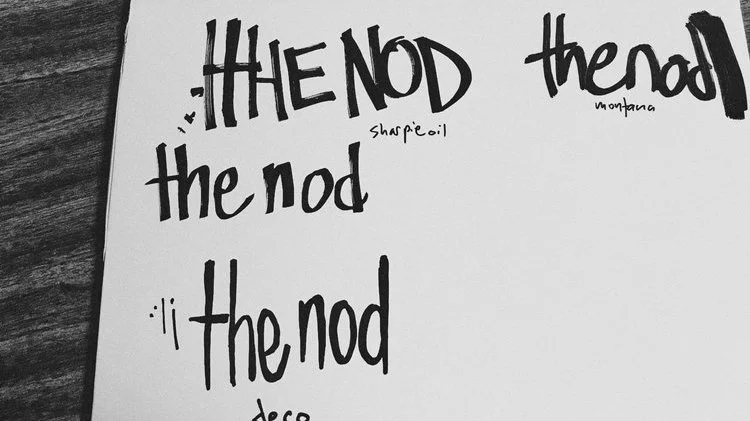 THE NOD
sharpie oil
the nod
montana
the nod
the nod
deco